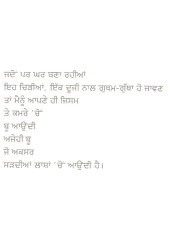 ਜਦੋਂ ਪਰ ਘਰ ਬਣਾ ਰਹੀਆਂ
ਇਹ ਚਿੜੀਆਂ, ਇੱਕ ਦੂਜੀ ਨਾਲ ਗੁਥਮ-ਗੁੱਥਾ ਹੋ ਜਾਵਣ
ਤਾਂ ਮੈਨੂੰ ਆਪਣੇ ਹੀ ਜਿਸਮ
ਤੇ ਕਮਰੇ 'ਚੋਂ
ਬੂ ਆਉਂਦੀ
ਅਜੇਹੀ ਬੂ
ਜੋ ਅਕਸਰ
ਸੜਦੀਆਂ ਲਾਸ਼ਾਂ 'ਚੋਂ ਆਉਂਦੀ ਹੈ।